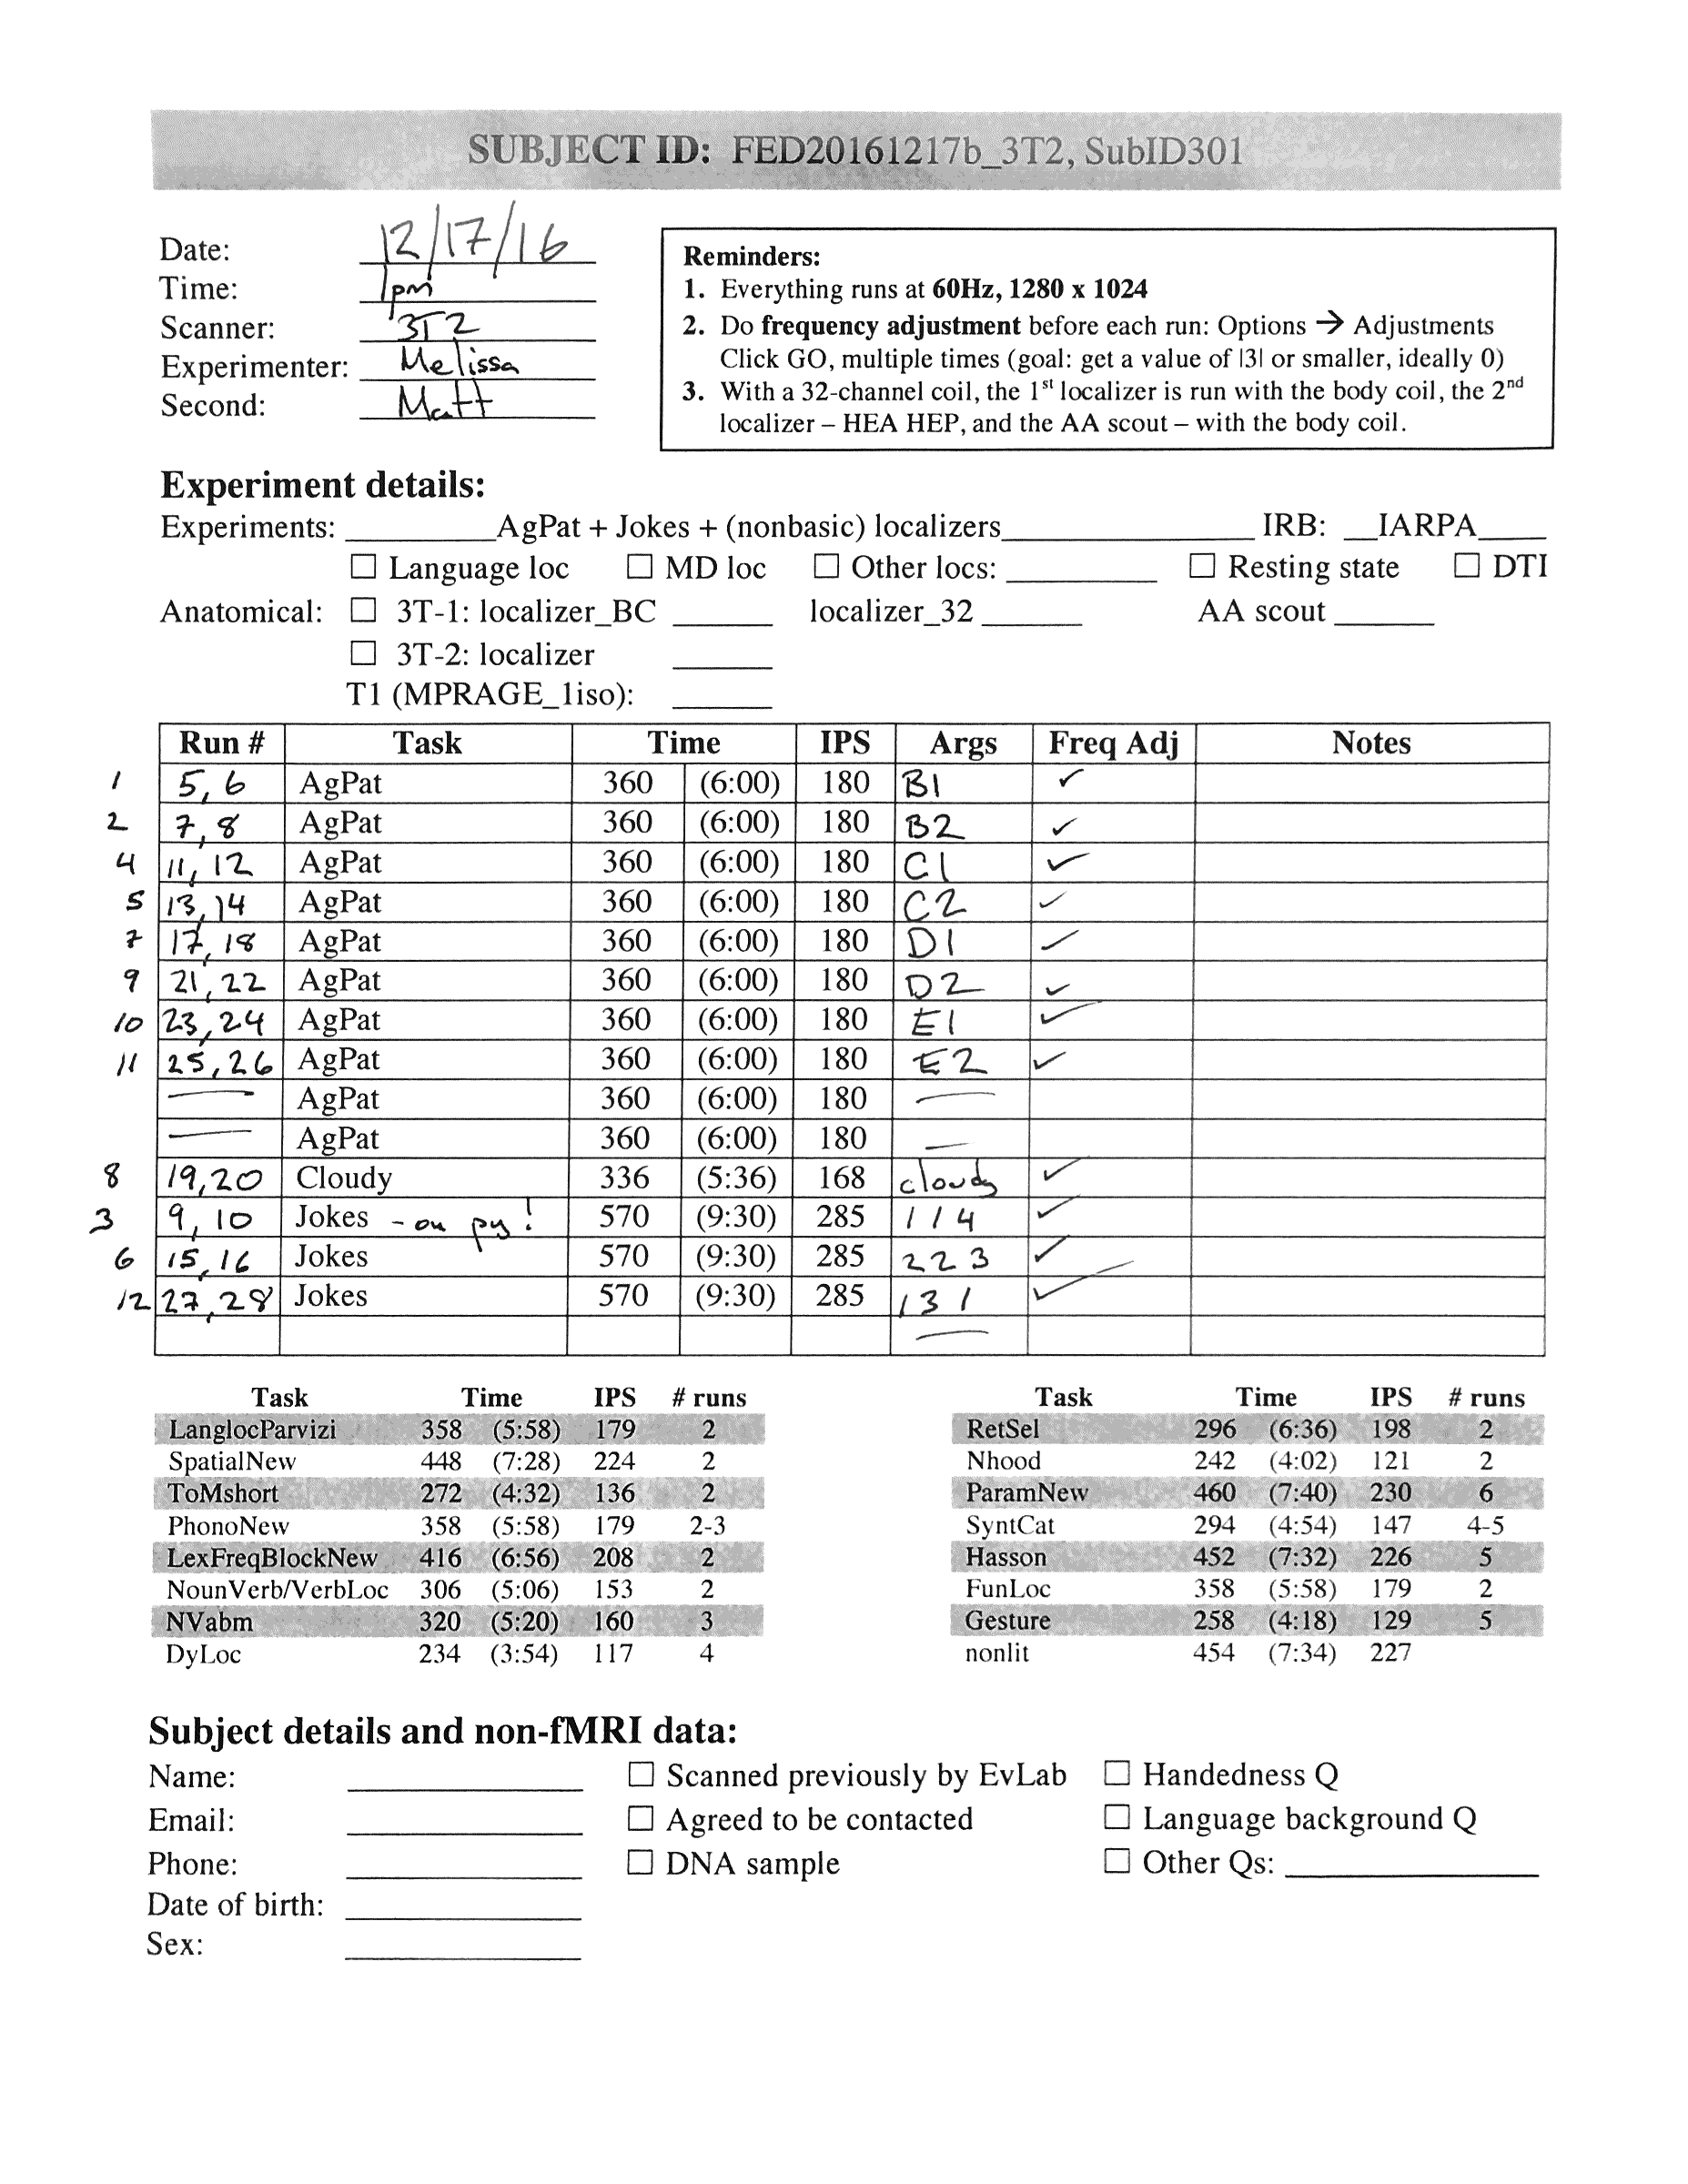 SUBJECT ID: FED20161217b_3T2, SubID301
Date: 12/17/16
Time: 1pm
Scanner: 3T2
Experimenter: Melissa
Second: Matt
Reminders:
1. Everything runs at 60Hz, 1280 x 1024
2. Do frequency adjustment before each run: Options → Adjustments
Click GO, multiple times (goal: get a value of |3| or smaller, ideally 0)
3. With a 32-channel coil, the 1st localizer is run with the body coil, the 2nd
localizer – HEA HEP, and the AA scout – with the body coil.
Experiment details:
Experiments: ________AgPat + Jokes + (nonbasic) localizers______________ IRB: __IARPA____
☐ Language loc ☐ MD loc ☐ Other locs: ________ ☐ Resting state ☐ DTI
Anatomical: ☐ 3T-1: localizer_BC ______ localizer_32 ______ AA scout ______
☐ 3T-2: localizer ______
T1 (MPRAGE_1iso): ______
Run # Task Time IPS Args Freq Adj Notes
1 5, 6 AgPat 360 (6:00) 180 B1 ✓
2 7, 8 AgPat 360 (6:00) 180 B2 ✓
4 11, 12 AgPat 360 (6:00) 180 C1 ✓
5 13, 14 AgPat 360 (6:00) 180 C2 ✓
7 17, 18 AgPat 360 (6:00) 180 D1 ✓
9 21, 22 AgPat 360 (6:00) 180 D2 ✓
10 23, 24 AgPat 360 (6:00) 180 E1 ✓
11 25, 26 AgPat 360 (6:00) 180 E2 ✓
— AgPat 360 (6:00) 180 —
— AgPat 360 (6:00) 180 —
8 19, 20 Cloudy 336 (5:36) 168 cloudy ✓
3 9, 10 Jokes - on py! 570 (9:30) 285 1 1 4 ✓
6 15, 16 Jokes 570 (9:30) 285 2 2 3 ✓
12 27, 28 Jokes 570 (9:30) 285 1 3 1 ✓
—
Task Time IPS # runs
LanglocParvizi 358 (5:58) 179 2
SpatialNew 448 (7:28) 224 2
ToMshort 272 (4:32) 136 2
PhonoNew 358 (5:58) 179 2-3
LexFreqBlockNew 416 (6:56) 208 2
NounVerb/VerbLoc 306 (5:06) 153 2
NVabm 320 (5:20) 160 3
DyLoc 234 (3:54) 117 4
Task Time IPS # runs
RetSel 296 (6:36) 198 2
Nhood 242 (4:02) 121 2
ParamNew 460 (7:40) 230 6
SyntCat 294 (4:54) 147 4-5
Hasson 452 (7:32) 226 5
FunLoc 358 (5:58) 179 2
Gesture 258 (4:18) 129 5
nonlit 454 (7:34) 227
Subject details and non-fMRI data:
Name: ____________ ☐ Scanned previously by EvLab ☐ Handedness Q
Email: ____________ ☐ Agreed to be contacted ☐ Language background Q
Phone: ____________ ☐ DNA sample ☐ Other Qs: ____________
Date of birth: ____________
Sex: ____________